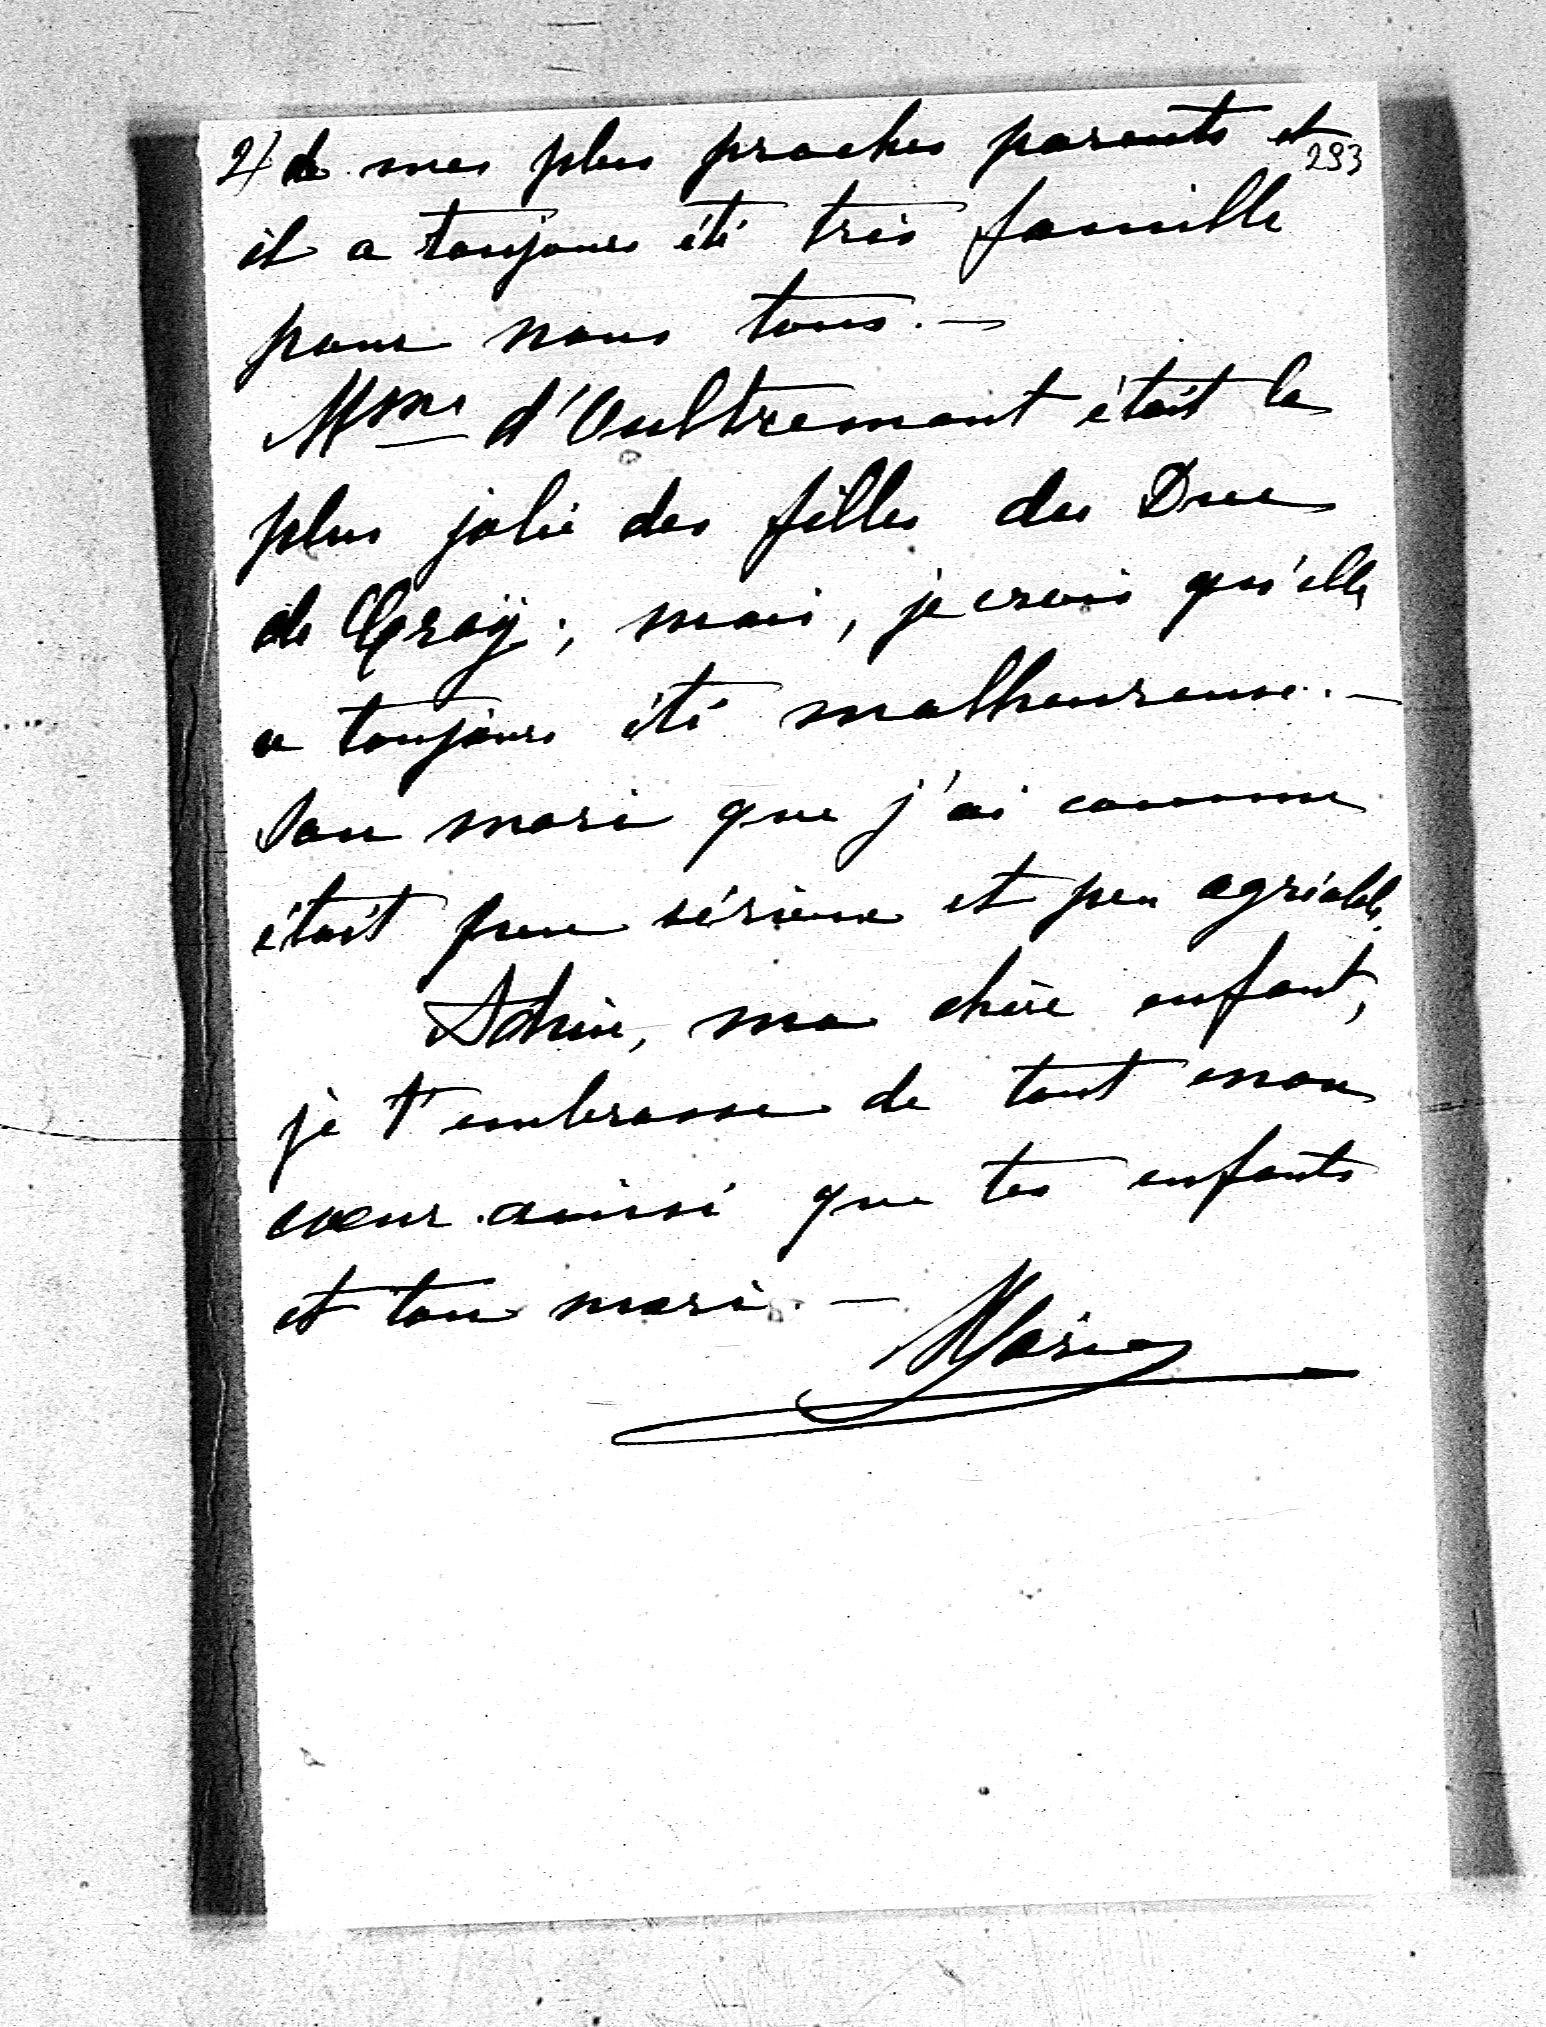 2/ de mes plus proches parents et 293
il a toujours été très famille
pour nous tous. —
Mme d'Oultremont était la
plus jolie des filles du Duc
de Croÿ; mais, je crois qu'elle
a toujours été malheureuse. —
Son mari que j'ai connu
était peu sérieux et peu agréable.
Adieu, ma chère enfant,
je t'embrasse de tout mon
cœur ainsi que tes enfants
et ton mari. —
Marie